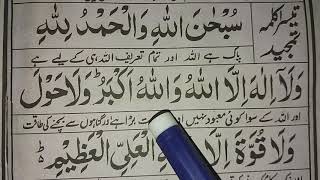 تیسرا کلمہ تمجید
سُبْحٰنَ اللّٰهِ وَالْحَمْدُ لِلّٰهِ
پاک ہے اللہ اور تمام تعریف اللہ ہی کے لیے ہے
وَلَآ اِلٰهَ اِلَّا اللّٰهُ وَاللّٰهُ اَكْبَرُ ؕ وَلَا حَوْلَ
اور اللہ کے سوا کوئی معبود نہیں اور بڑا ہے اور گناہوں سے بچنے کی طاقت
وَلَا قُوَّةَ اِلَّا الْعَلِیِّ الْعَظِیْمِ ؕ